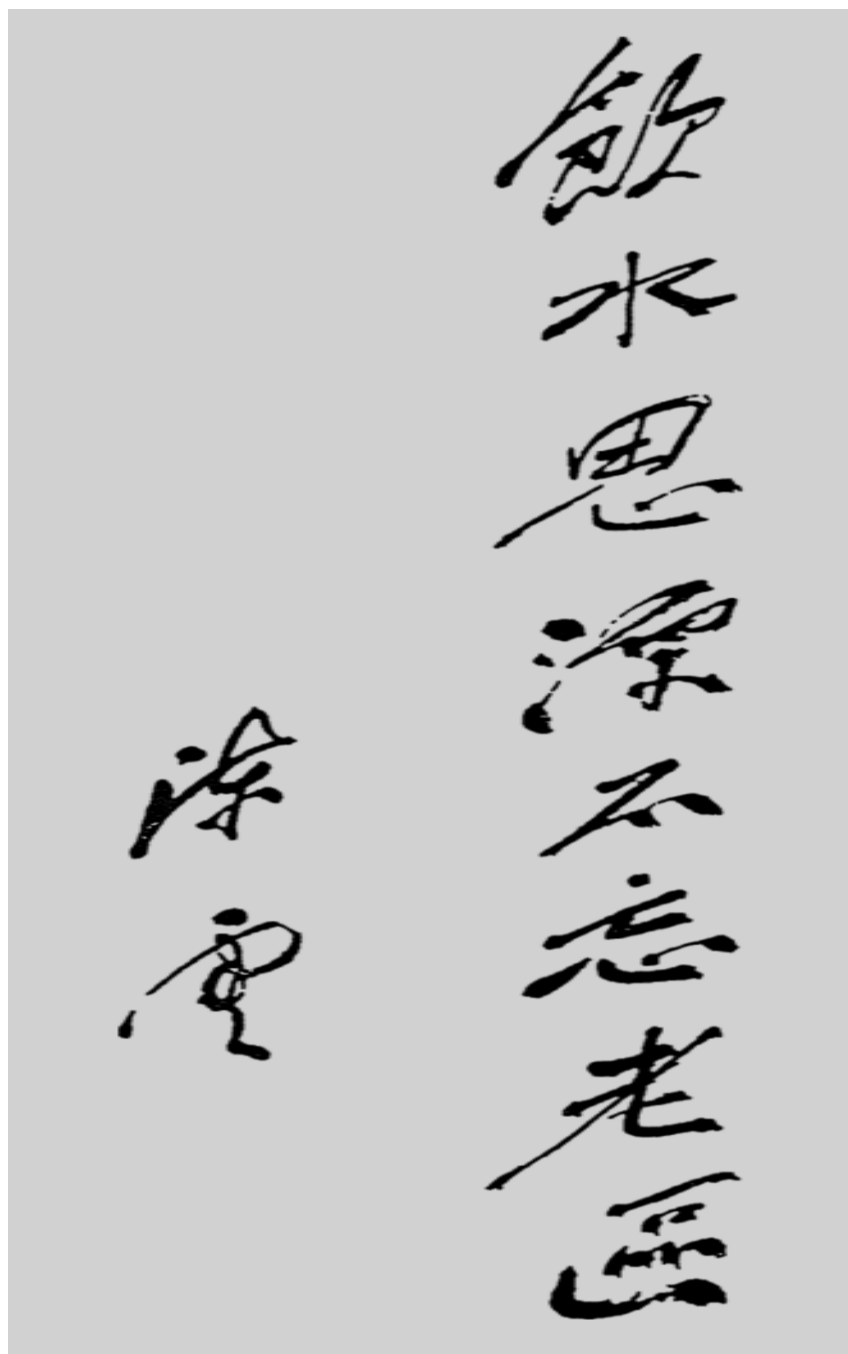 飲水思源不忘老區
陈雲